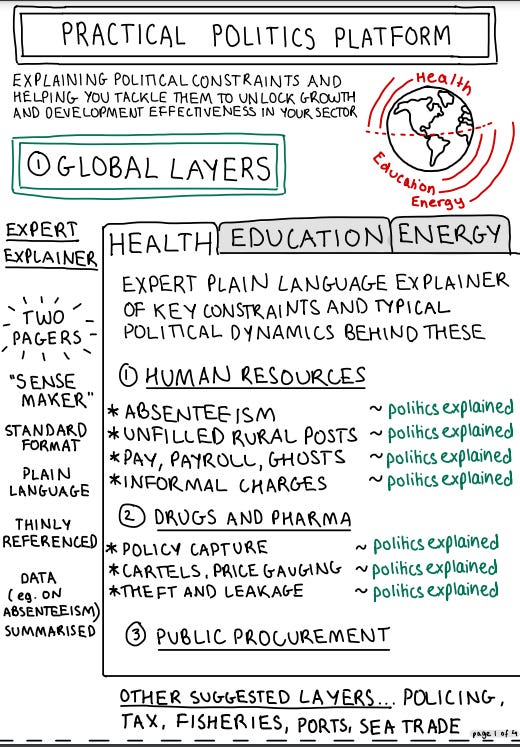 PRACTICAL POLITICS PLATFORM
EXPLAINING POLITICAL CONSTRAINTS AND
HELPING YOU TACKLE THEM TO UNLOCK GROWTH
AND DEVELOPMENT EFFECTIVENESS IN YOUR SECTOR
Health
Education
Energy
① GLOBAL LAYERS
EXPERT
EXPLAINER
TWO
PAGERS
"SENSE
MAKER"
STANDARD
FORMAT
PLAIN
LANGUAGE
THINLY
REFERENCED
DATA
(eg. ON
ABSENTEEISM)
SUMMARISED
HEALTH EDUCATION ENERGY
EXPERT PLAIN LANGUAGE EXPLAINER
OF KEY CONSTRAINTS AND TYPICAL
POLITICAL DYNAMICS BEHIND THESE
① HUMAN RESOURCES
* ABSENTEEISM ~ politics explained
* UNFILLED RURAL POSTS ~ politics explained
* PAY, PAYROLL, GHOSTS ~ politics explained
* INFORMAL CHARGES ~ politics explained
② DRUGS AND PHARMA
* POLICY CAPTURE ~ politics explained
* CARTELS, PRICE GAUGING ~ politics explained
* THEFT AND LEAKAGE ~ politics explained
③ PUBLIC PROCUREMENT
OTHER SUGGESTED LAYERS... POLICING,
TAX, FISHERIES, PORTS, SEA TRADE
page 1 of 4